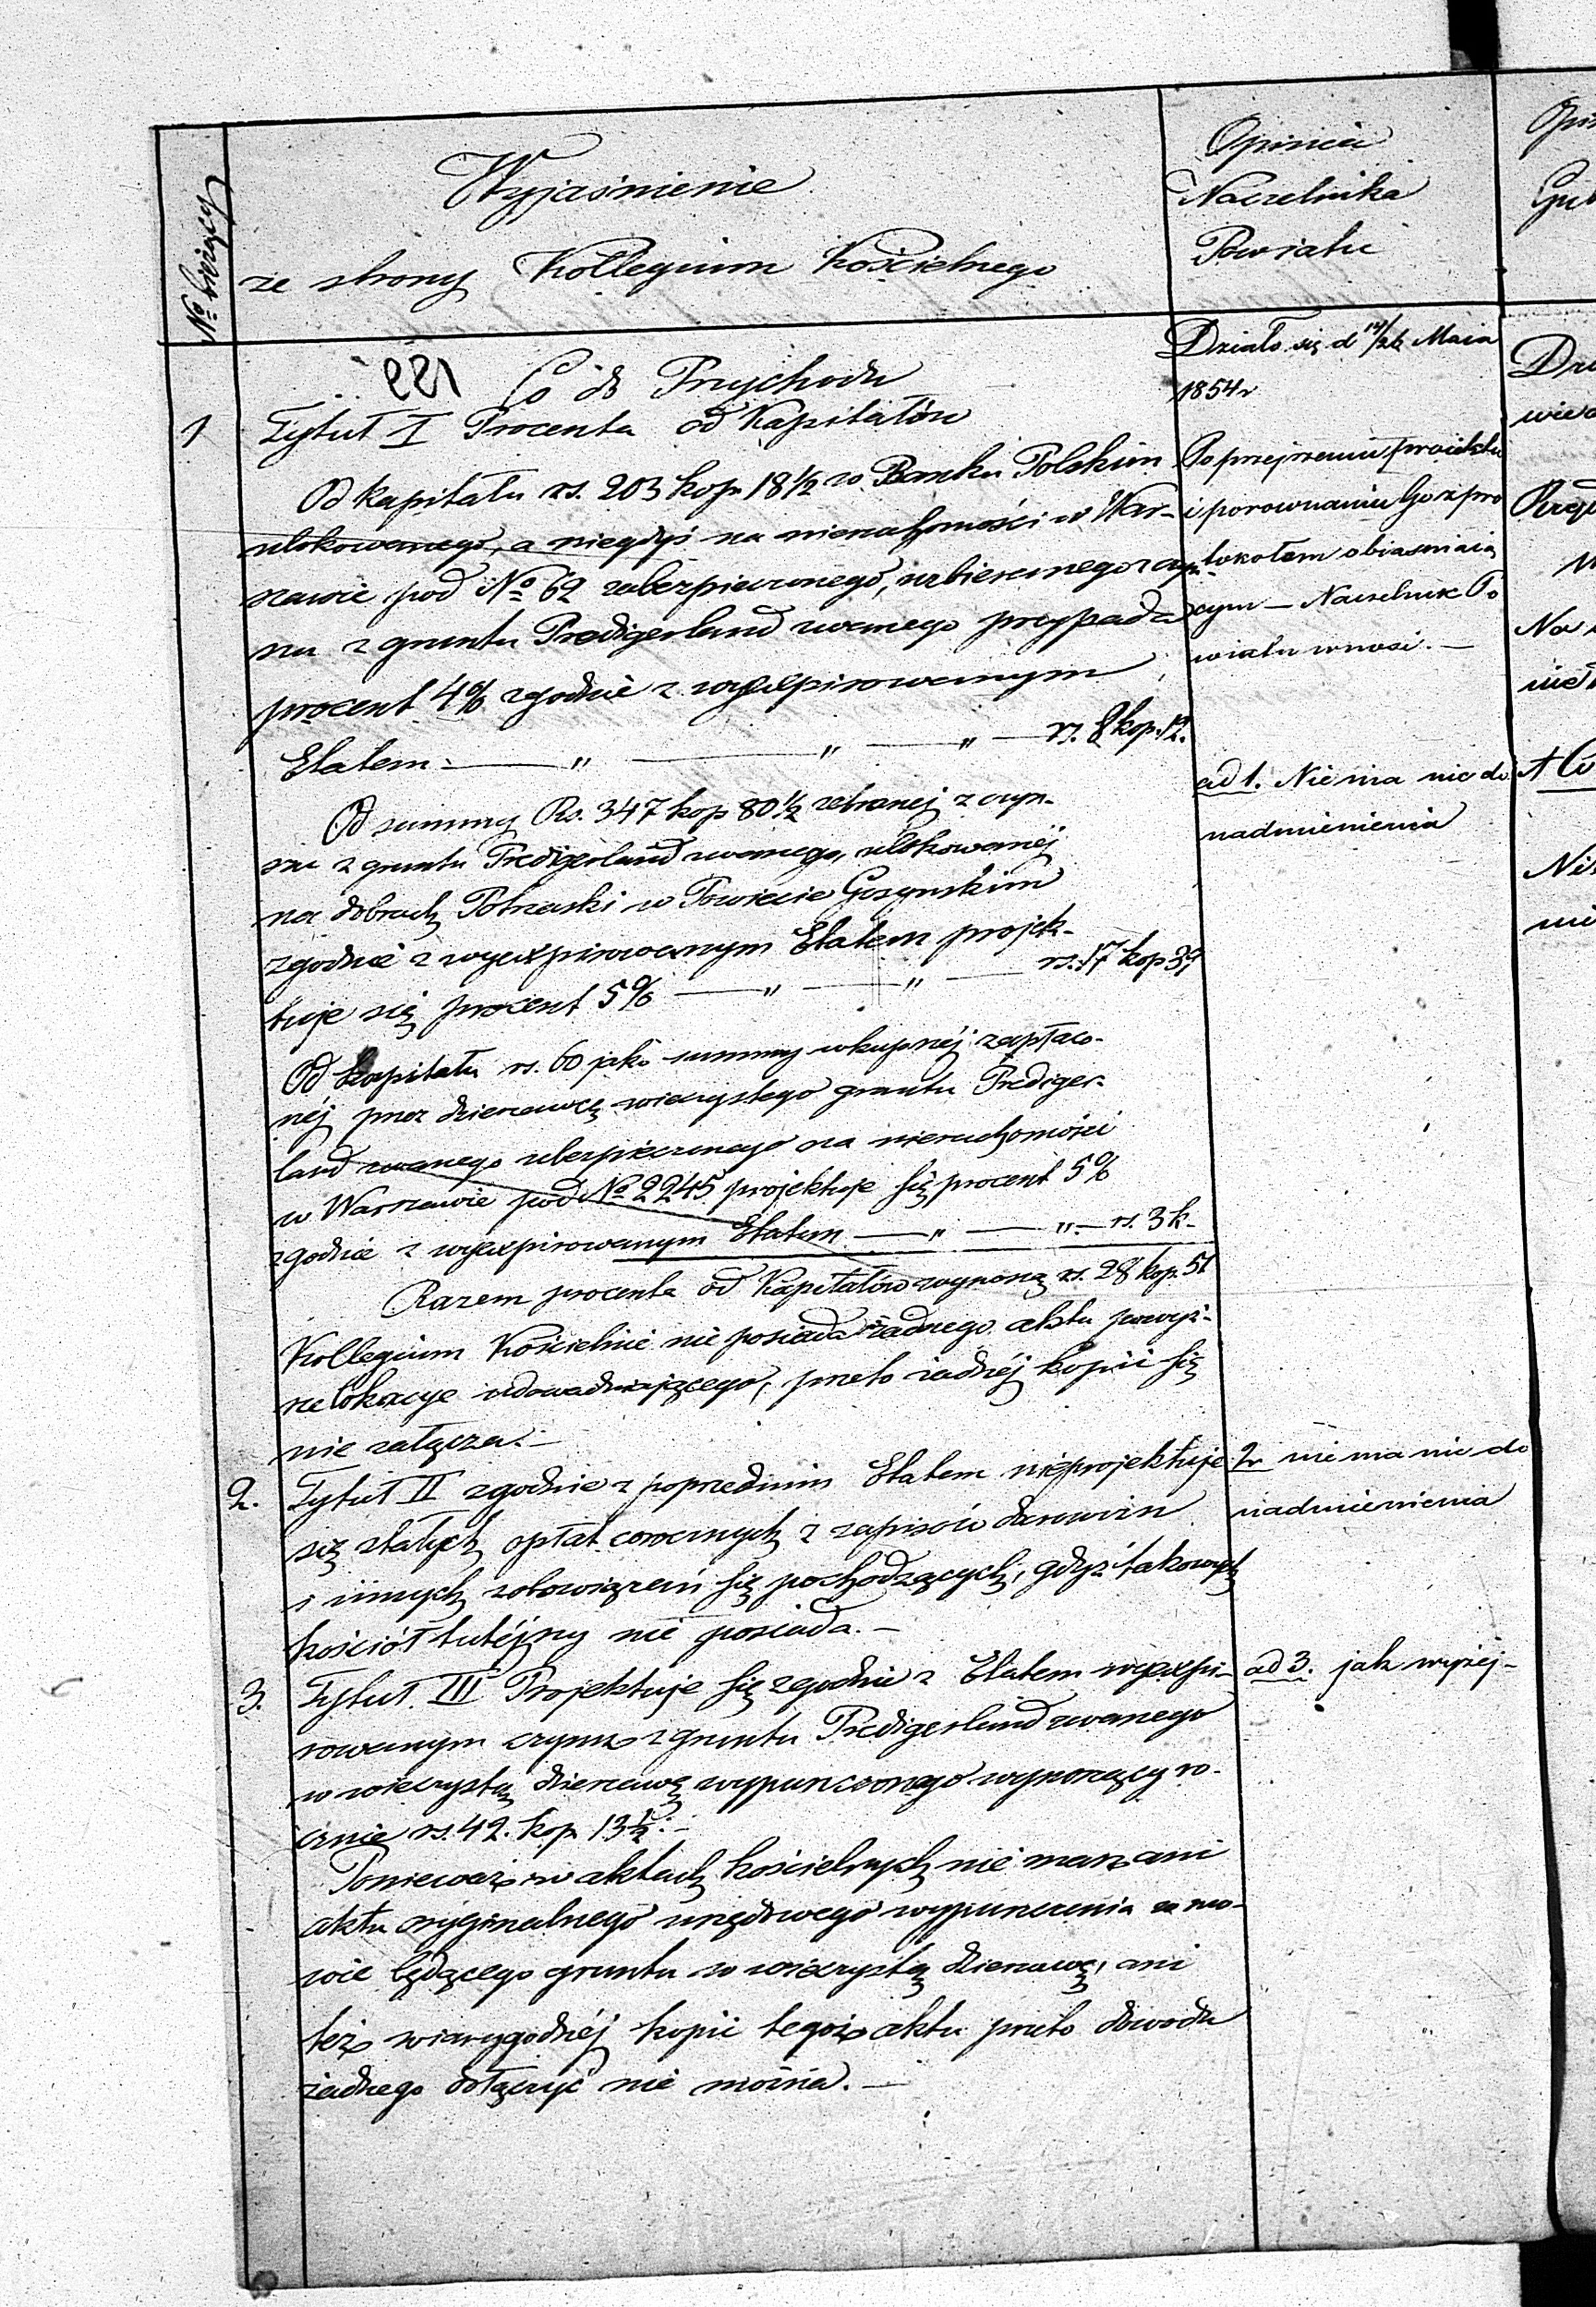 No bieżący
Wyjaśnienie
ze strony Kollegium Kościelnego
Opinia
Naczelnika
Powiatu
Co do Przychodu
1 Tytuł I Procenta od Kapitałów
Od kapitału rs. 203 kop. 18½ w Banku Polskim
ulokowanego, a niegdyś na nieruchomości w War-
szawie pod No 62 zabezpieczonego, uzbieranego z czyn-
szu z gruntu Predigerland zwanego przypada
procent 4% zgodnie z wyexpirowanym
Etatem — " — " — rs. 8 kop. 12.
Od summy Rs. 347 kop 80½ zebranej z czyn-
szu z gruntu Predigerland zwanego, ulokowanéj
na dobrach Potrzaski w Powiecie Gostynskim
zgodnie z wyexpirowanym Etatem projek-
tuje się procent 5% — " — " — rs. 17 kop 39
Od kapitału rs. 60 jako summy wkupnéj zapłaco-
néj przez dzierzawcę wieczystego gruntu Prediger-
land zwanego ubezpieczonego na nieruchomości
w Warszawie pod No 2245 projektuje się procent 5%
zgodnie z wyexpirowanym Etatem — " — " — rs. 3 k -
Razem procenta od Kapitałów wynoszą rs. 28 kop. 51
Kollegium Kościelne nie posiada żadnego aktu powyż-
sze lokacye udowadniającego, przeto żadnéj kopii się
nie załącza. —
2. Tytuł II zgodnie z poprzednim Etatem nieprojektuje
się stałych opłat corocznych z zapisów darowizn
i innych zobowiązań się pochodzących, gdyż takowych
kościół tutéjszy nie posiada. —
3. Tytuł III Projektuje się zgodnie z Etatem wyexpi-
rowanym czynsz z gruntu Predigerland zwanego
w wieczystą dzierzawę wypuszczonego wynoszący ro-
cznie rs. 42. kop 13½. -
Ponieważ w aktach kościelnych nie masz ani
aktu oryginalnego urzędowego wypuszczenia w mo-
wie będącego gruntu w wieczystą dzierzawę, ani
też wiarygodnéj kopii tegoż aktu przeto dowodu
żadnego dołączyć nie można. —
Działo się d 14/26 Maia
1854r
Po przejrzeniu proiektu
i porownaniu Go z pro
tokołem obiasniaią
cym — Naczelnik Po
wiatu wnosi. —
ad 1. Nie ma nic do
nadmienienia
2. nie ma nic do
nadmienienia
ad 3. jak wyżej -